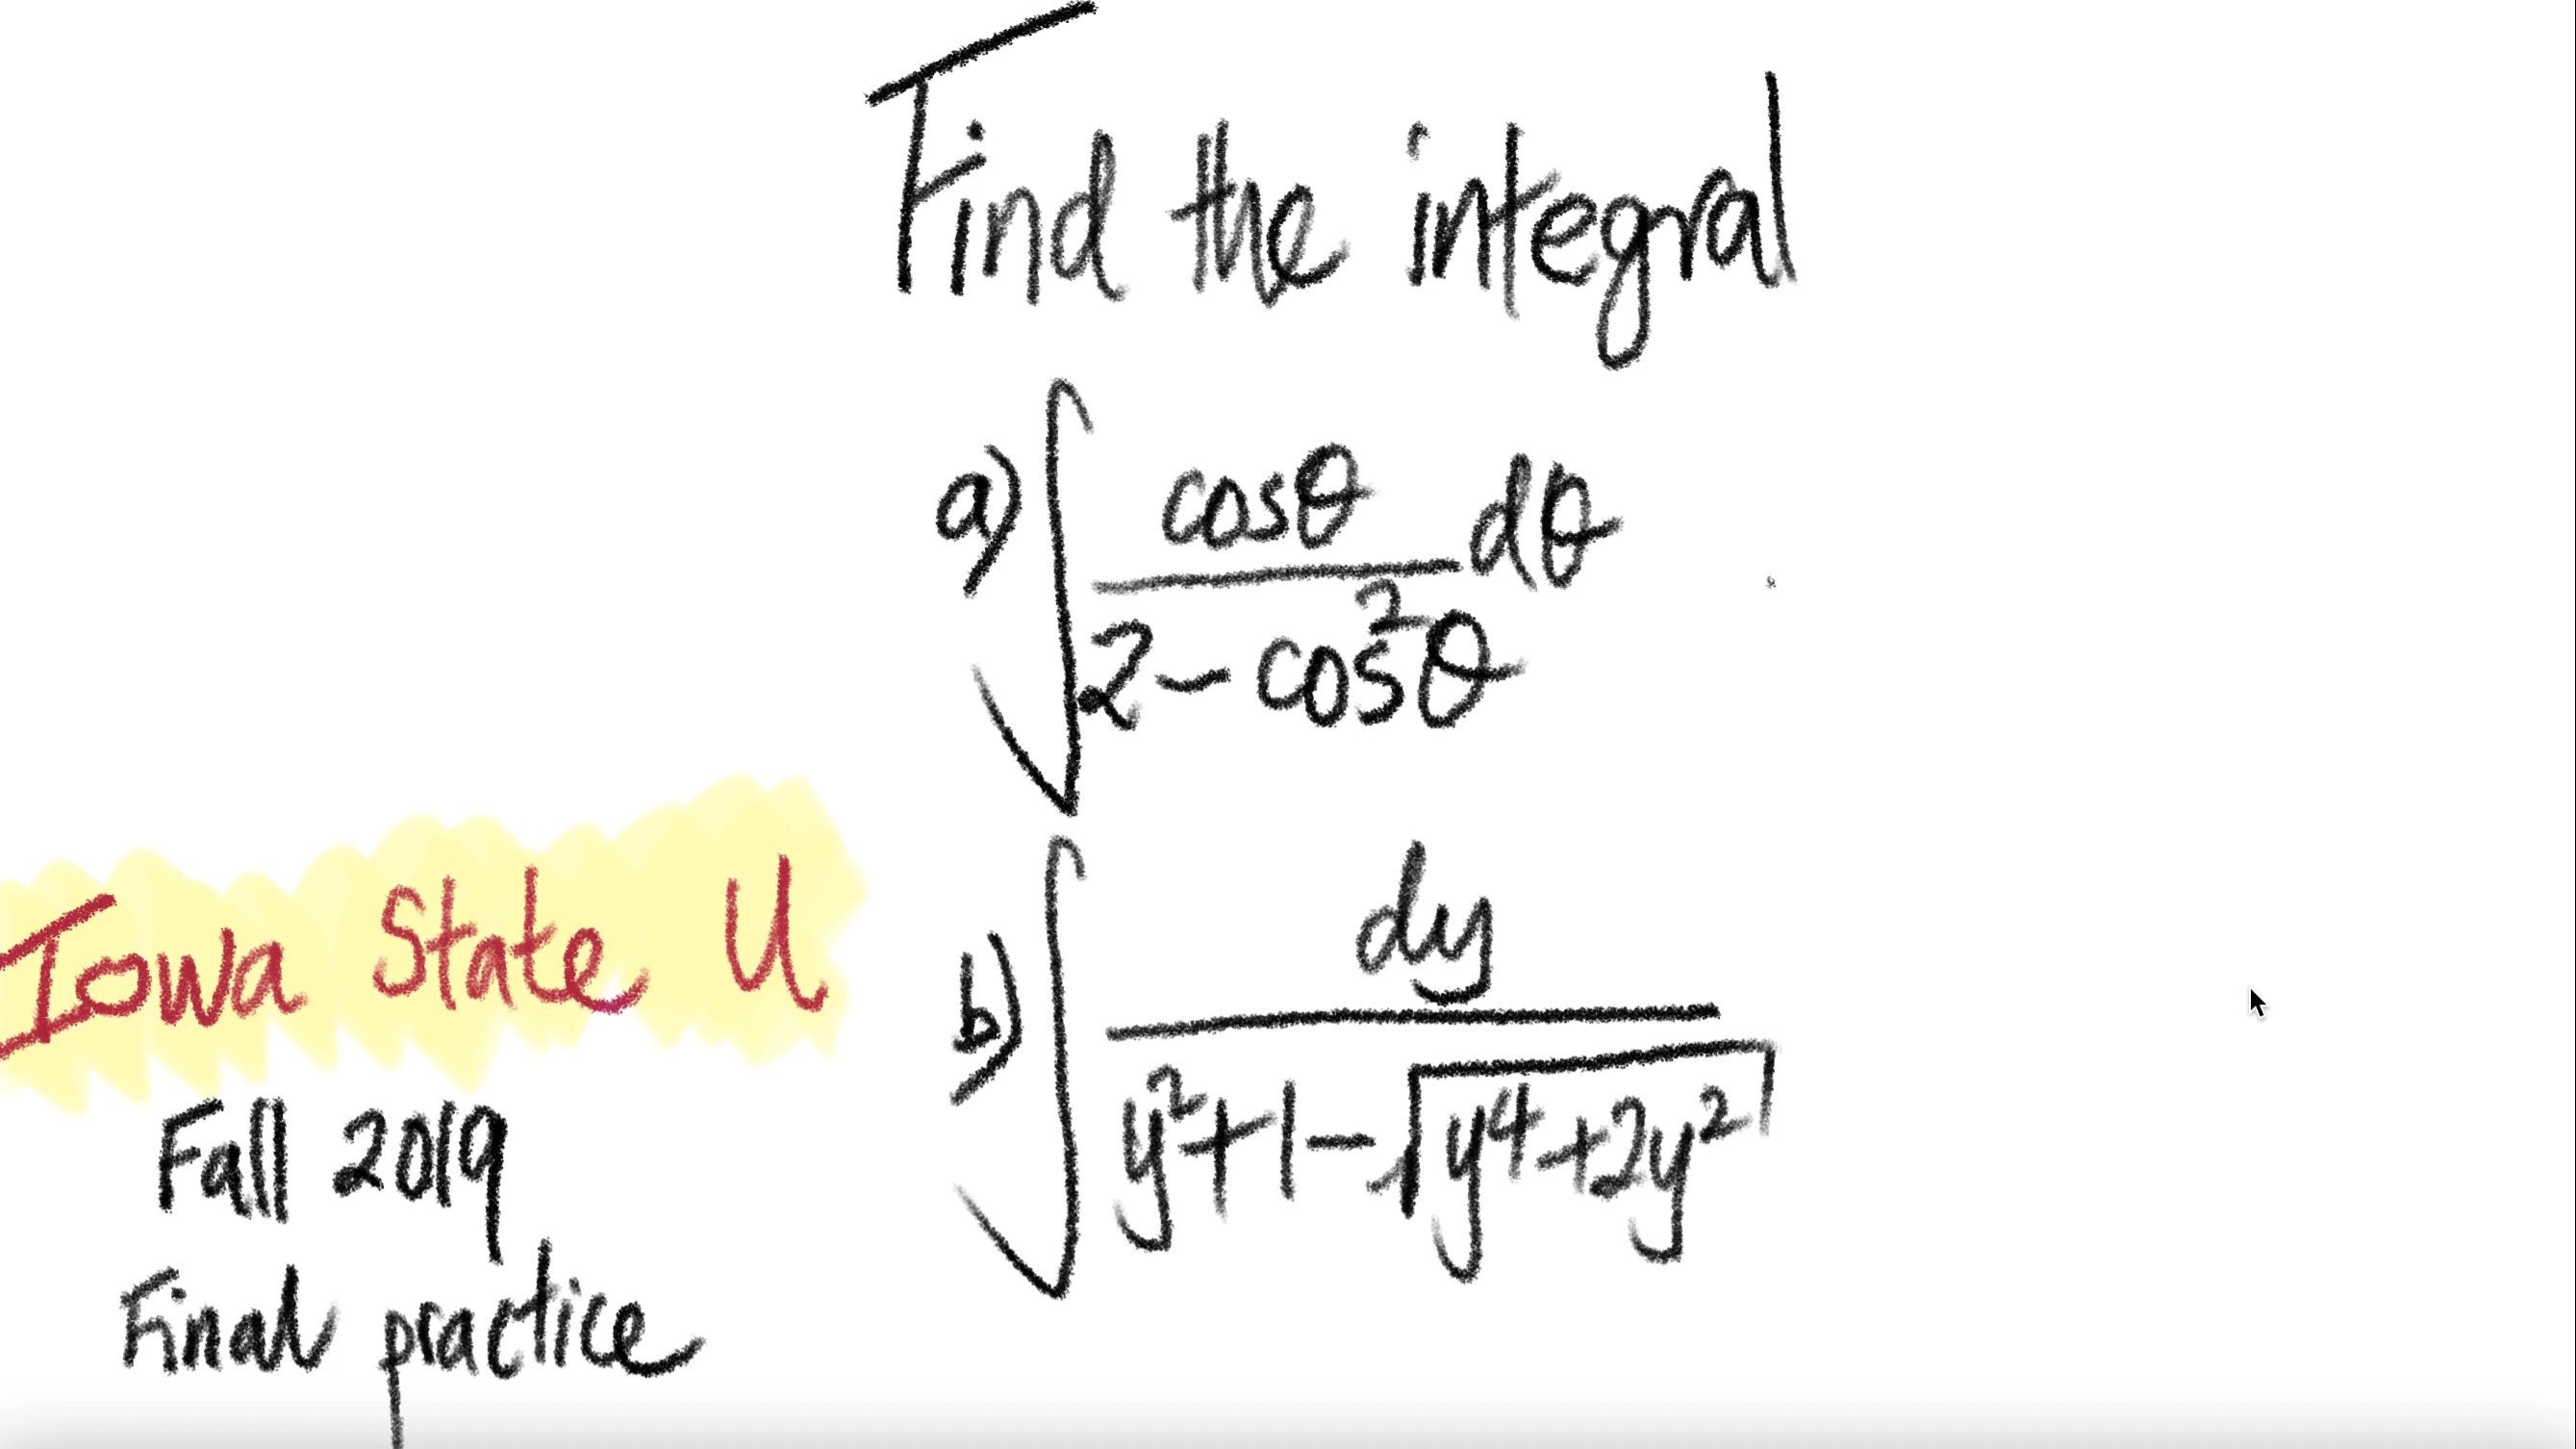 Find the integral
a) ∫ cosθ / (2 - cos²θ) dθ
b) ∫ dy / (y² + 1 - √(y⁴ + 2y²))
Iowa State U
Fall 2019
Final practice